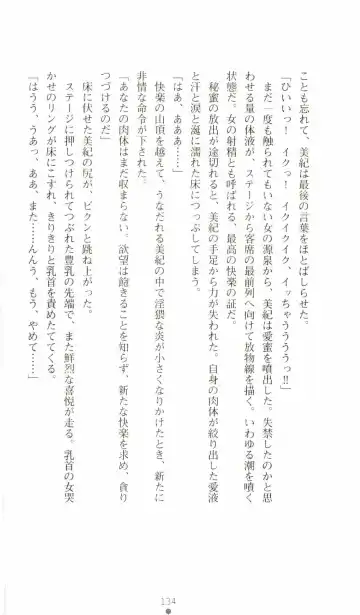 ことも忘れて、美紀は最後の言葉をほとばしらせた。
「ひいいっ！　イクっ！　イクイクイク、イッちゃうううっ!!」
まだ一度も触られてもいない女の源泉から、美紀は愛蜜を噴出した。失禁したのかと思
わせる量の体液が、ステージから客席の最前列へ向けて放物線を描く。いわゆる潮を噴く
状態だ。女の射精とも呼ばれる、最高の快楽の証だ。
秘蜜の放出が途切れると、美紀の手足から力が失われた。自身の肉体が絞り出した愛液
と汗と涙と涎に濡れた床につっぷしてしまう。
「はぁ、あああ……」
快楽の山頂を越えて、うなだれる美紀の中で淫猥な炎が小さくなりかけたとき、新たに
非情な命令が下された。
「あなたの肉体はまだ収まらない。欲望は飽きることを知らず、新たな快楽を求め、貪り
つづけるのだ」
床に伏せた美紀の尻が、ビクンと跳ね上がった。
ステージに押しつけられてつぶれた豊乳の先端で、また鮮烈な喜悦が走る。乳首の女哭
かせのリングが床にこすれ、きりきりと乳首を責めたててくる。
「はうう、うあっ、ああ、また……んんう、もう、やめて……」
134